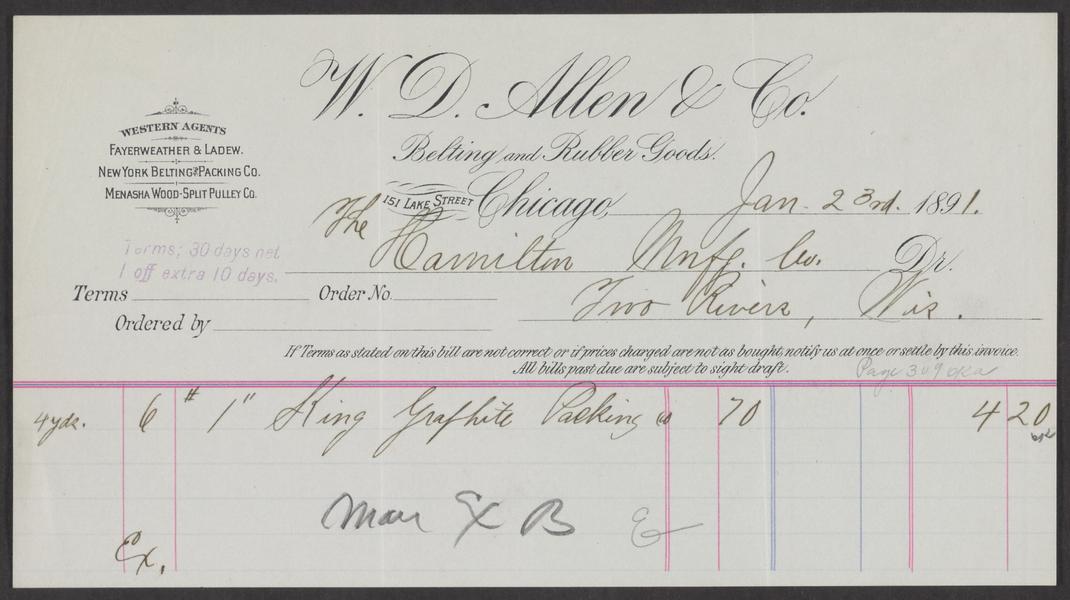 W. D. Allen & Co.
Belting and Rubber Goods.
WESTERN AGENTS
FAYERWEATHER & LADEW.
NEW YORK BELTING AND PACKING CO.
MENASHA WOOD-SPLIT PULLEY CO.
151 LAKE STREET Chicago, Jan. 23rd. 1891.
The Hamilton Mnfg. Co. Dr.
Terms; 30 days net
1 off extra 10 days.
Terms Order No.
Two Rivers, Wis.
Ordered by
If Terms as stated on this bill are not correct or if prices charged are not as bought, notify us at once or settle by this invoice.
All bills past due are subject to sight draft.
Page 309
4 yds. 6 # 1" King Graphite Packing @ 70 4 20
Ex B
Ex.